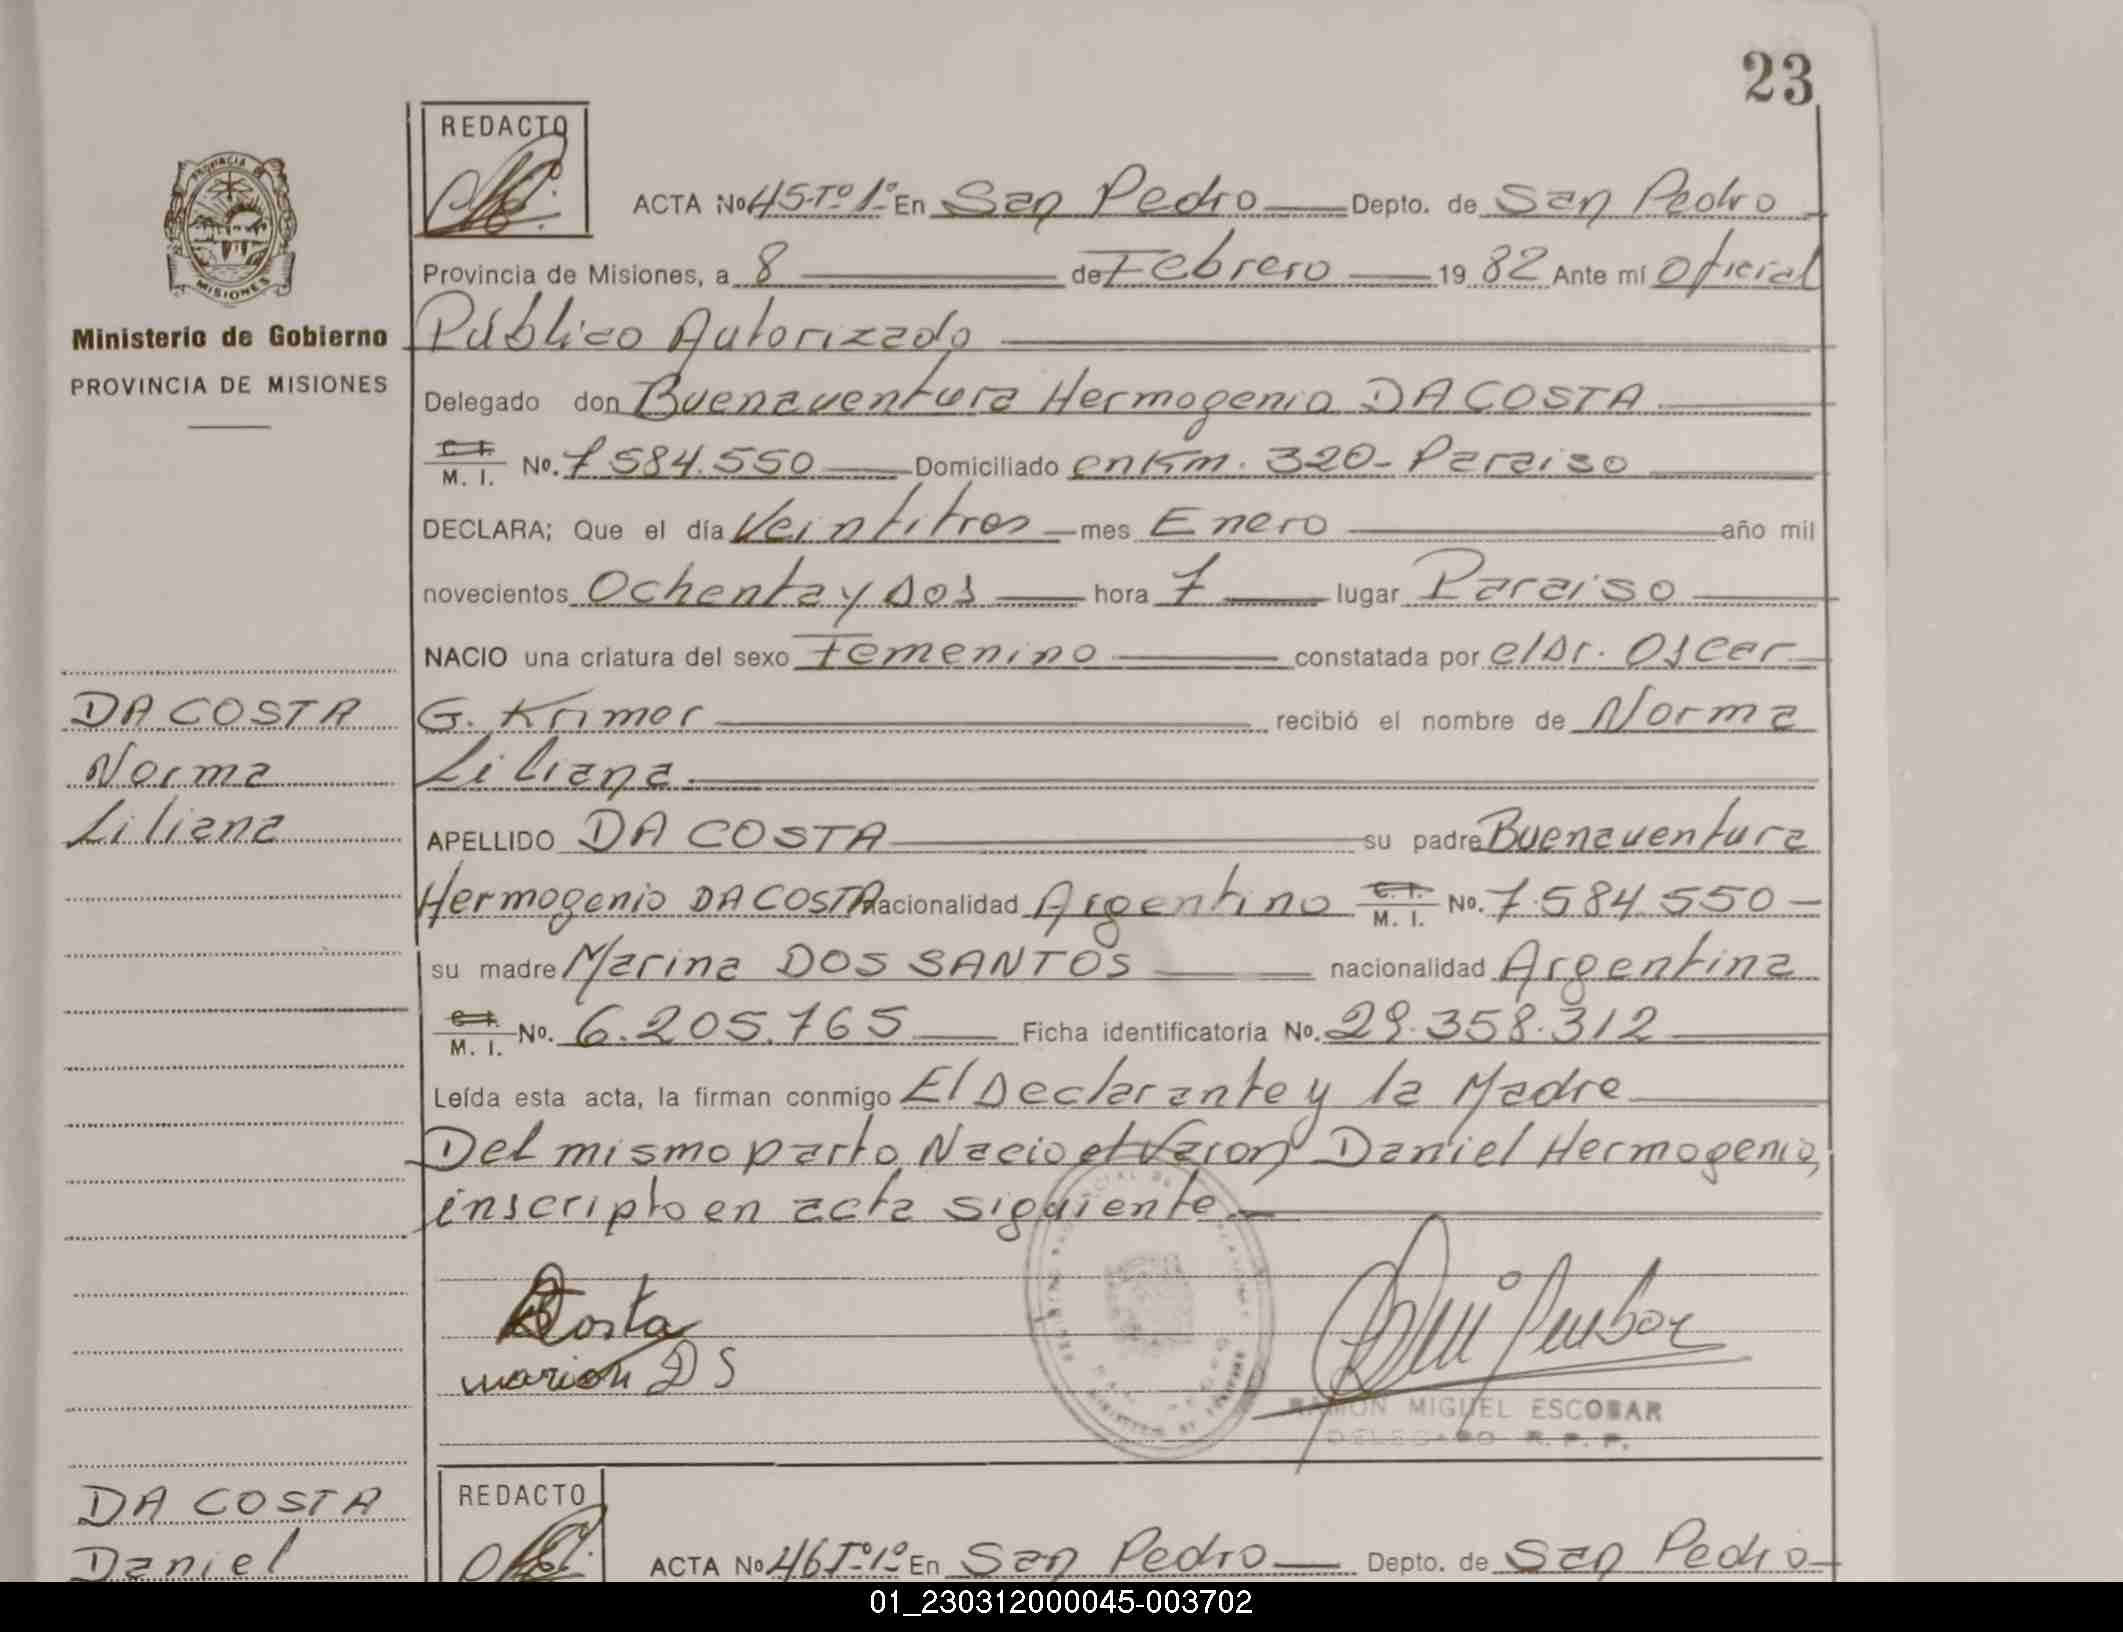 23
REDACTO
ACTA Nº 45-Tº 1º En San Pedro Depto. de San Pedro
Provincia de Misiones, a 8 de Febrero 19 82 Ante mí Oficial
Público Autorizado
Ministerio de Gobierno
PROVINCIA DE MISIONES
Delegado don Buenaventura Hermogenio DA COSTA
C. I.
M. I. Nº. 7.584.550 Domiciliado en Km. 320 - Paraiso
DECLARA; Que el día Veintitres mes Enero año mil
novecientos Ochenta y Dos hora 7 lugar Paraiso
NACIO una criatura del sexo Femenino constatada por el Dr. Oscar
G. Krimer recibió el nombre de Norma
Liliana
DA COSTA
Norma
Liliana
APELLIDO DA COSTA su padre Buenaventura
Hermogenio DA COSTA nacionalidad Argentino C. I. M. I. Nº. 7.584.550
su madre Marina DOS SANTOS nacionalidad Argentina
C. I.
M. I. Nº. 6.205.765 Ficha identificatoria Nº. 29.358.312
Leída esta acta, la firman conmigo El Declarante y la Madre
Del mismo parto Nacio el Varon Daniel Hermogenio,
inscripto en acta siguiente
Costa
RAMON MIGUEL ESCOBAR
DELEGADO R. P. P.
DA COSTA
Daniel
REDACTO
ACTA Nº 46 Tº 1º En San Pedro Depto. de San Pedro
01_230312000045-003702